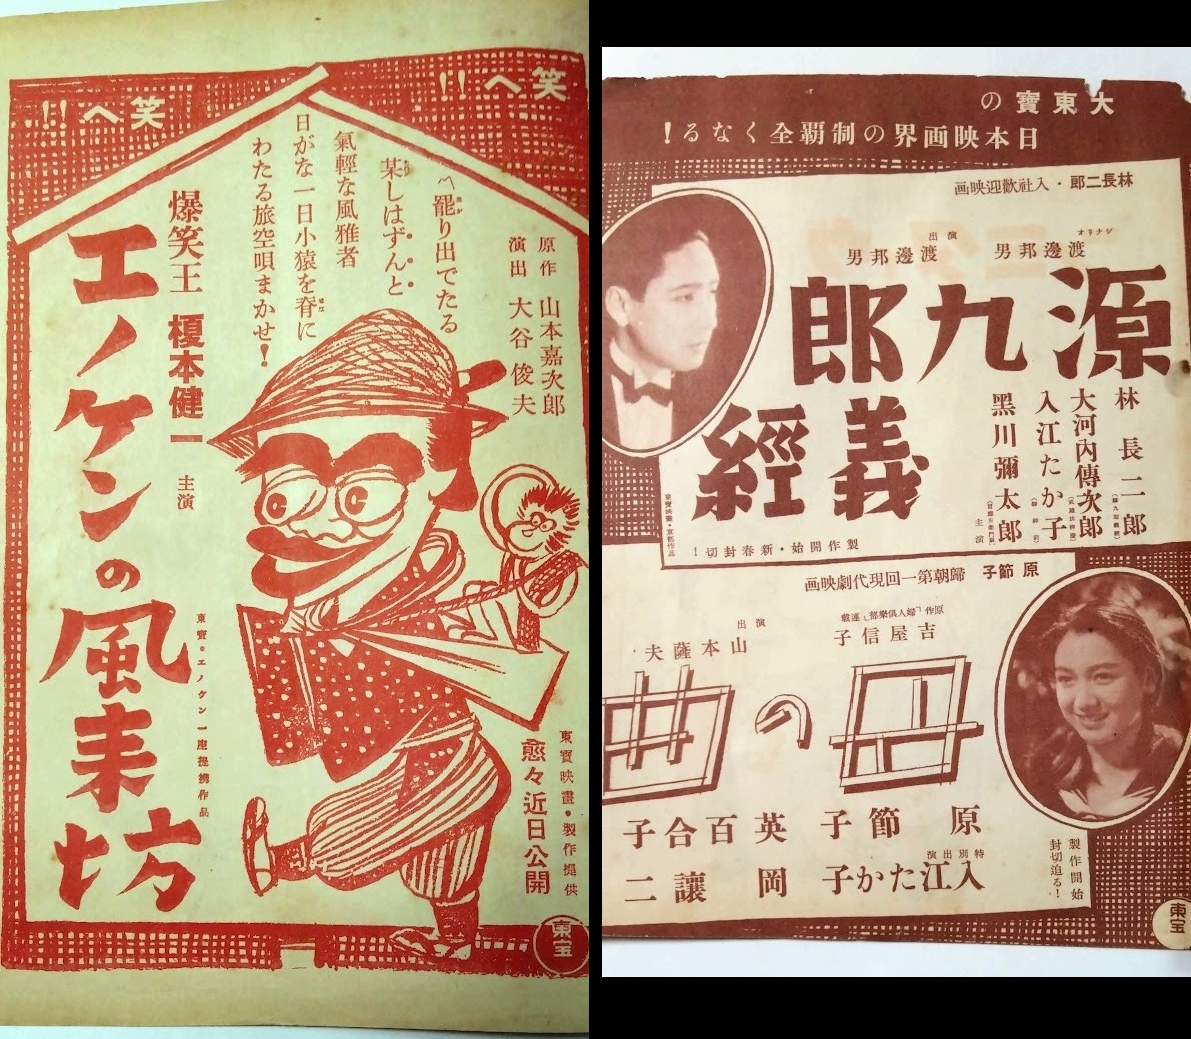 笑へ!!
笑へ!!
原作 山本嘉次郎
演出 大谷俊夫
罷り出でたる
某しはずんと
氣輕な風雅者
日がな一日小猿を脊に
わたる旅空唄まかせ!
爆笑王 榎本健一 主演
エノケンの風来坊
東寶・エノケン一座提携作品
東寶映畫・製作提供
愈々近日公開
東宝
大東寶の
日本映画界の制覇全くなる!
林長二郎・入社歡迎映画
オリヂナン
渡邊邦男
演出
渡邊邦男
源九郎
義經
林長二郎
大河內傳次郎
入江たか子
黑川彌太郎
主演
東寶映畫・京都作品
製作開始・新春封切!
原節子 歸朝第一回現代劇映画
原作「婦人俱樂部」連載
吉屋信子
演出
山本薩夫
母の曲
原節子
英百合子
特別出演
入江たか子
岡讓二
製作開始
封切迫る!
東宝